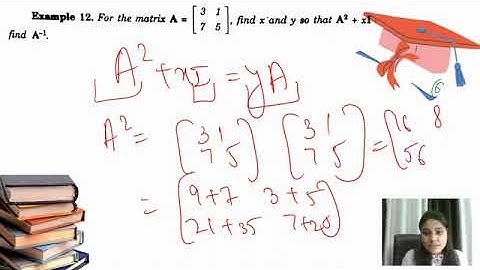 Example 12. For the matrix A = [3 1; 7 5], find x and y so that A² + xI
find A⁻¹.
A² + xI = yA
A² = [3 1; 7 5] [3 1; 7 5] = [16 8; 56
= [9+7 3+5; 21+35 7+25]